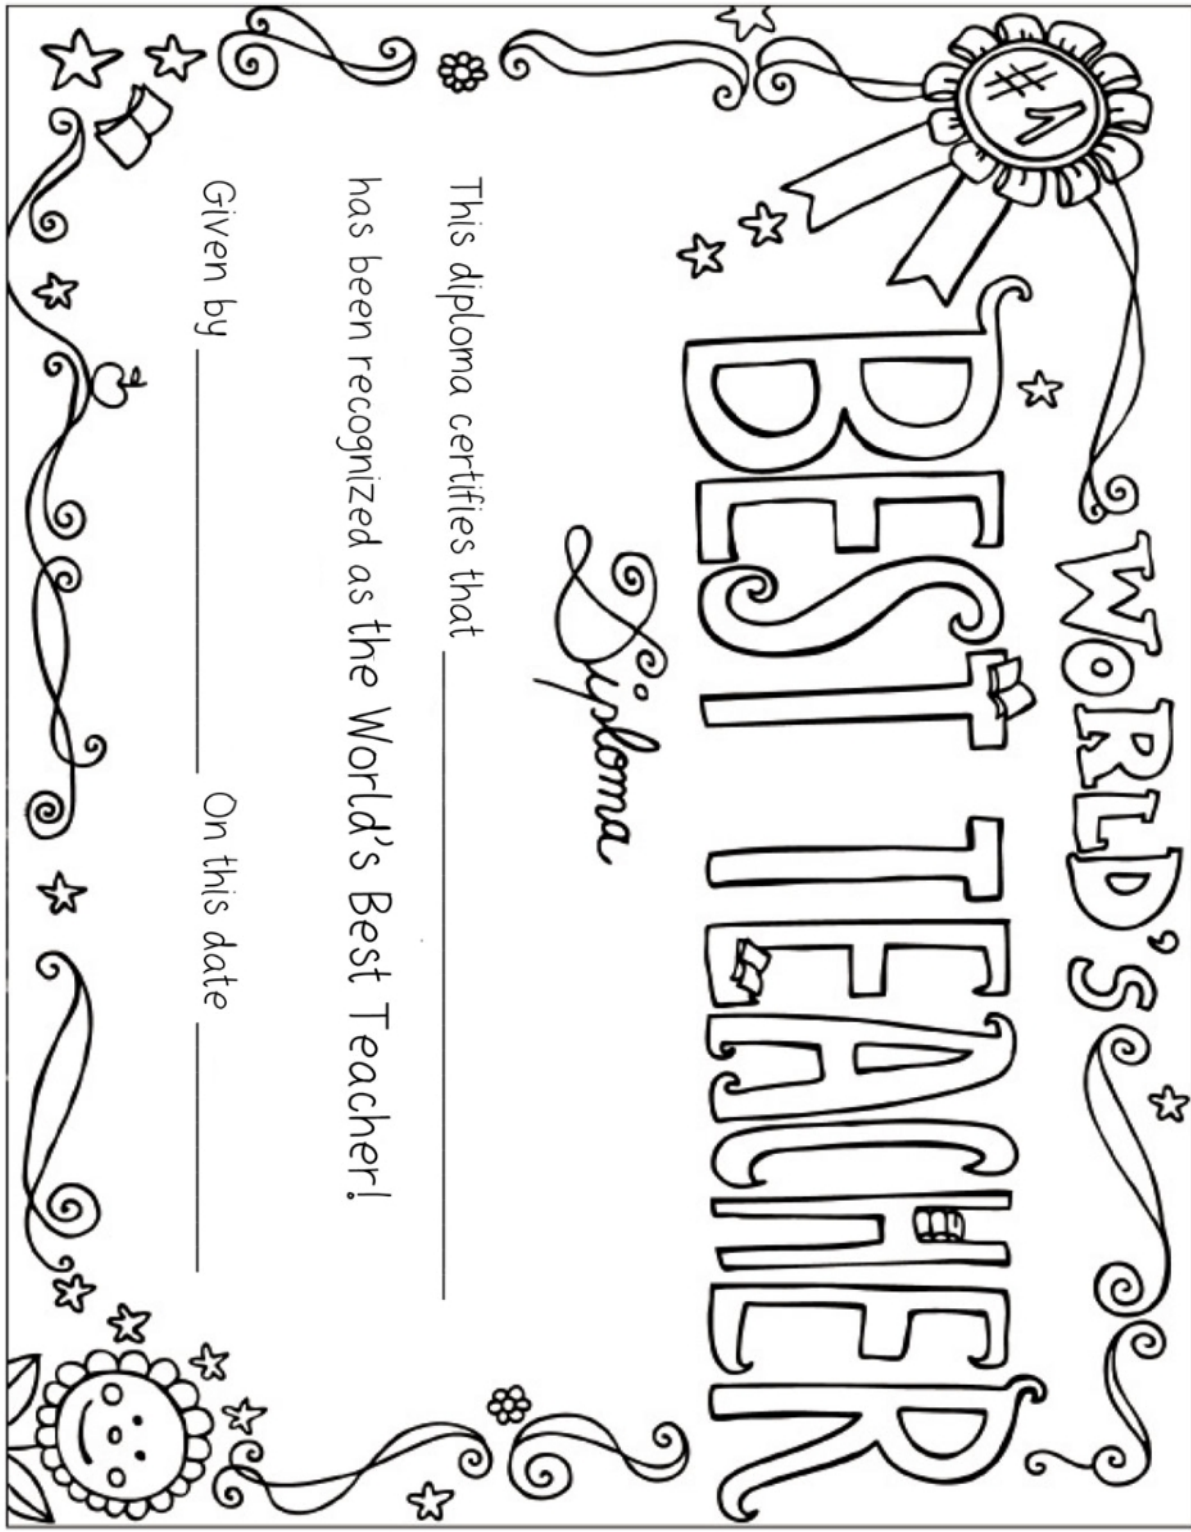 #1
WORLD'S
BEST TEACHER
Diploma
This diploma certifies that
has been recognized as the World's Best Teacher!
Given by On this date